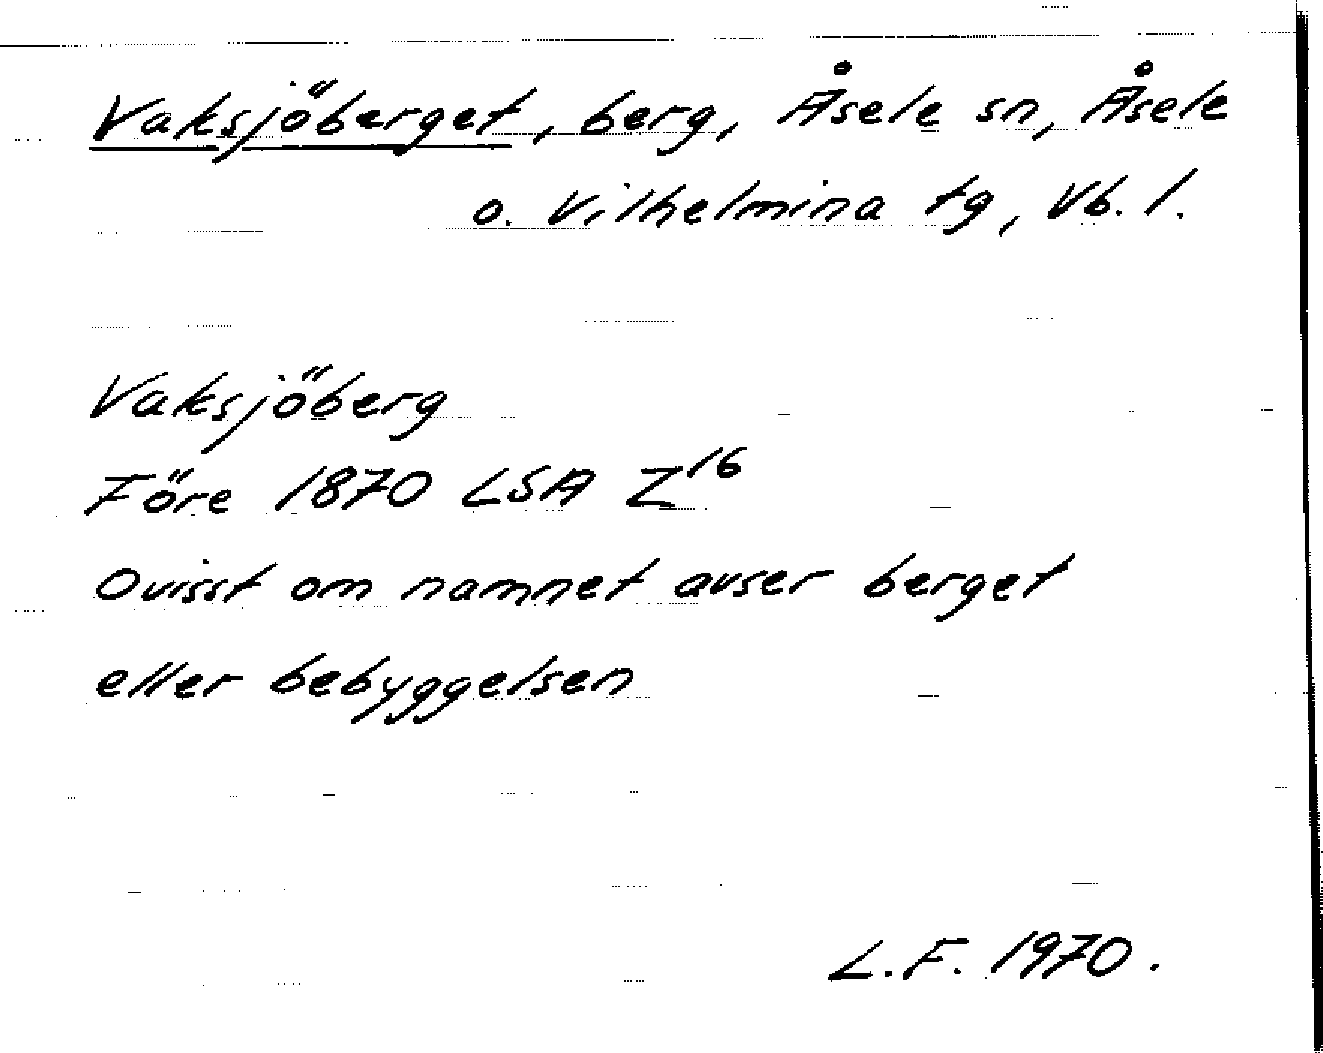 Vaksjöberget, berg, Åsele sn, Åsele
o. Vilhelmina tg, Vb. l.
Vaksjöberg
Före 1870 LSA Z16
Ovisst om namnet avser berget
eller bebyggelsen
L.F. 1970.